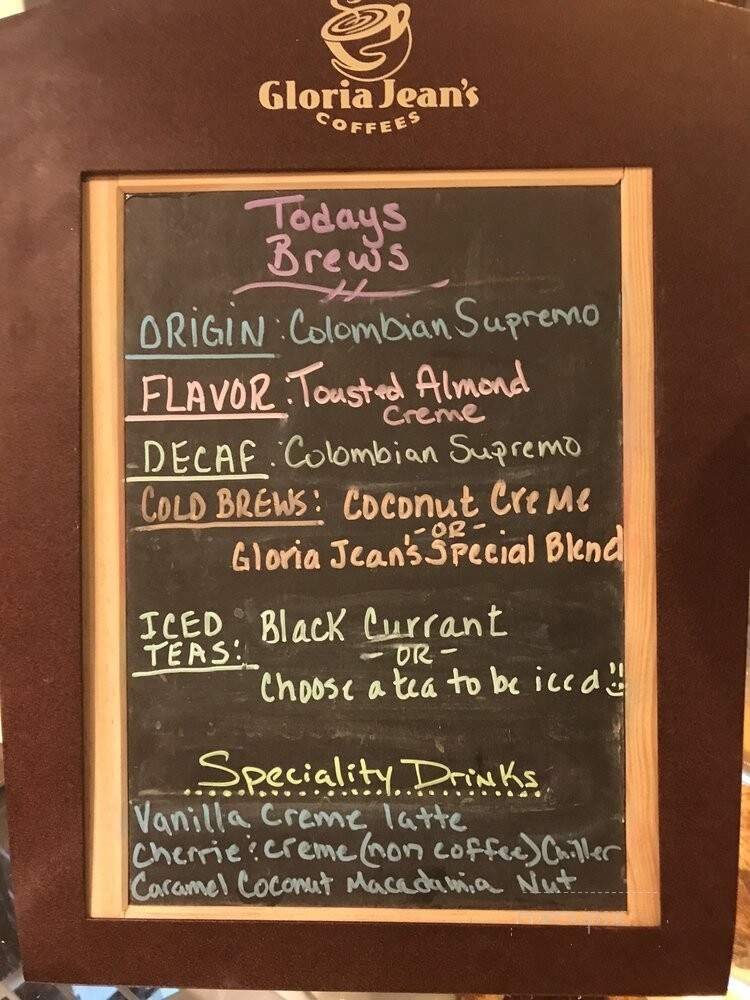 Gloria Jean's
COFFEES
Todays
Brews
ORIGIN: Colombian Supremo
FLAVOR: Toasted Almond
Creme
DECAF: Colombian Supremo
COLD BREWS: Coconut Creme
-OR-
Gloria Jean's Special Blend
ICED TEAS: Black Currant
-OR-
Choose a tea to be iced!!
Speciality Drinks
Vanilla Creme latte
Cherrie: creme (non coffee) Chiller
Caramel Coconut Macadamia Nut